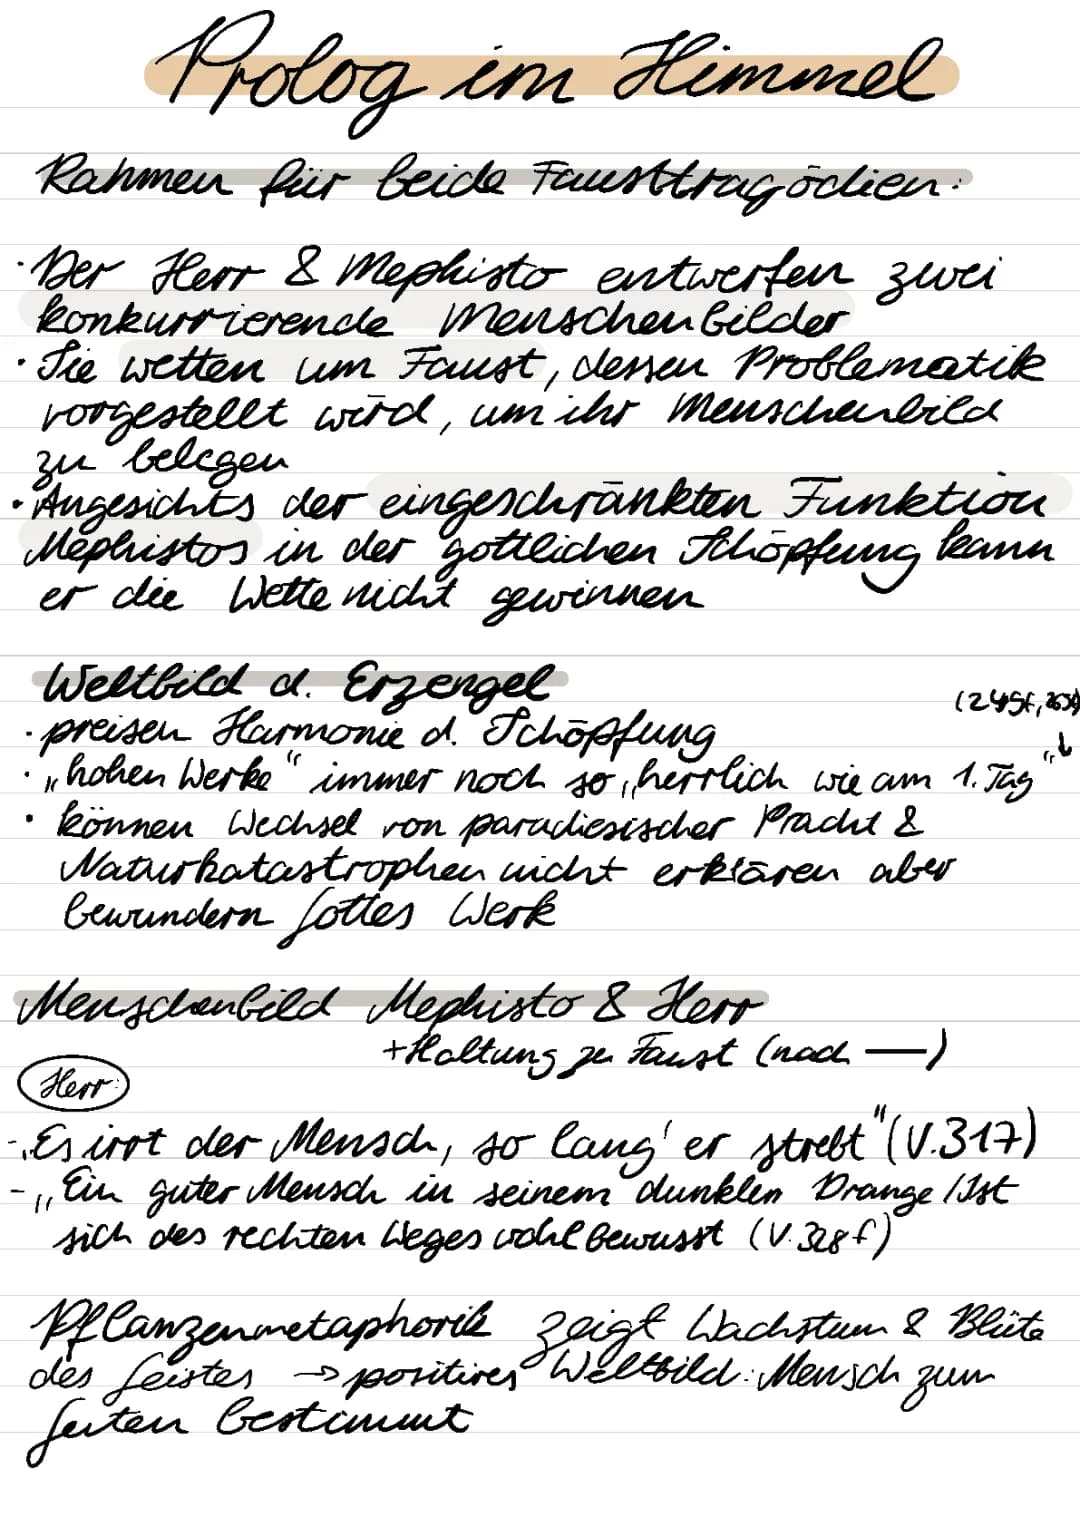 Prolog im Himmel
Rahmen für beide Fausttragödien:
· Der Herr & Mephisto entwerfen zwei
konkurrierende Menschenbilder
· Sie wetten um Faust, dessen Problematik
vorgestellt wird, um ihr Menschenbild
zu belegen
· Angesichts der eingeschränkten Funktion
Mephistos in der göttlichen Schöpfung kann
er die Wette nicht gewinnen
Weltbild d. Erzengel
· preisen Harmonie d. Schöpfung
· „hohen Werke" immer noch so „herrlich wie am 1. Tag"
· können Wechsel von paradiesischer Pracht &
Naturkatastrophen nicht erklären aber
bewundern Gottes Werk
Menschenbild Mephisto & Herr
+Haltung zu Faust (nach —)
Herr:
- „Es irrt der Mensch, so lang' er strebt" (V.317)
- „Ein guter Mensch in seinem dunklen Drange / Ist
sich des rechten Weges wohl bewusst (V. 328f)
Pflanzenmetaphorik zeigt Wachstum & Blüte
des Geistes → positives Weltbild: Mensch zum
Guten bestimmt